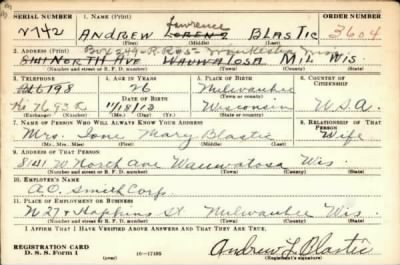 SERIAL NUMBER 1. NAME (Print) ORDER NUMBER
N742 ANDREW Lawrence LORENZ BLASTIC 3604
(First) (Middle) (Last)
2. ADDRESS (Print) Box 249 - R.R.#5 - Waukesha, Wis
8141 NORTH AVE WAUWATOSA MIL WIS.
(Number and street or R. F. D. number) (Town) (County) (State)
3. TELEPHONE 4. AGE IN YEARS 5. PLACE OF BIRTH 6. COUNTRY OF CITIZENSHIP
26 Milwaukee
DATE OF BIRTH (Town or county)
11/18/13 Wisconsin U.S.A.
(Exchange) (Number) (Mo.) (Day) (Yr.) (State or country)
7. NAME OF PERSON WHO WILL ALWAYS KNOW YOUR ADDRESS 8. RELATIONSHIP OF THAT PERSON
Mrs. Ione Mary Blastic Wife
(Mr., Mrs., Miss) (First) (Middle) (Last)
9. ADDRESS OF THAT PERSON
8141 W. North Ave Wauwatosa Wis.
(Number and street or R. F. D. number) (Town) (County) (State)
10. EMPLOYER'S NAME
A.O. Smith Corp.
11. PLACE OF EMPLOYMENT OR BUSINESS
N 27 & Hopkins St. Milwaukee Wis.
(Number and street or R. F. D. number) (Town) (County) (State)
I AFFIRM THAT I HAVE VERIFIED ABOVE ANSWERS AND THAT THEY ARE TRUE.
REGISTRATION CARD
D. S. S. Form 1 (over) 16-17105 Andrew L Blastic
(Registrant's signature)